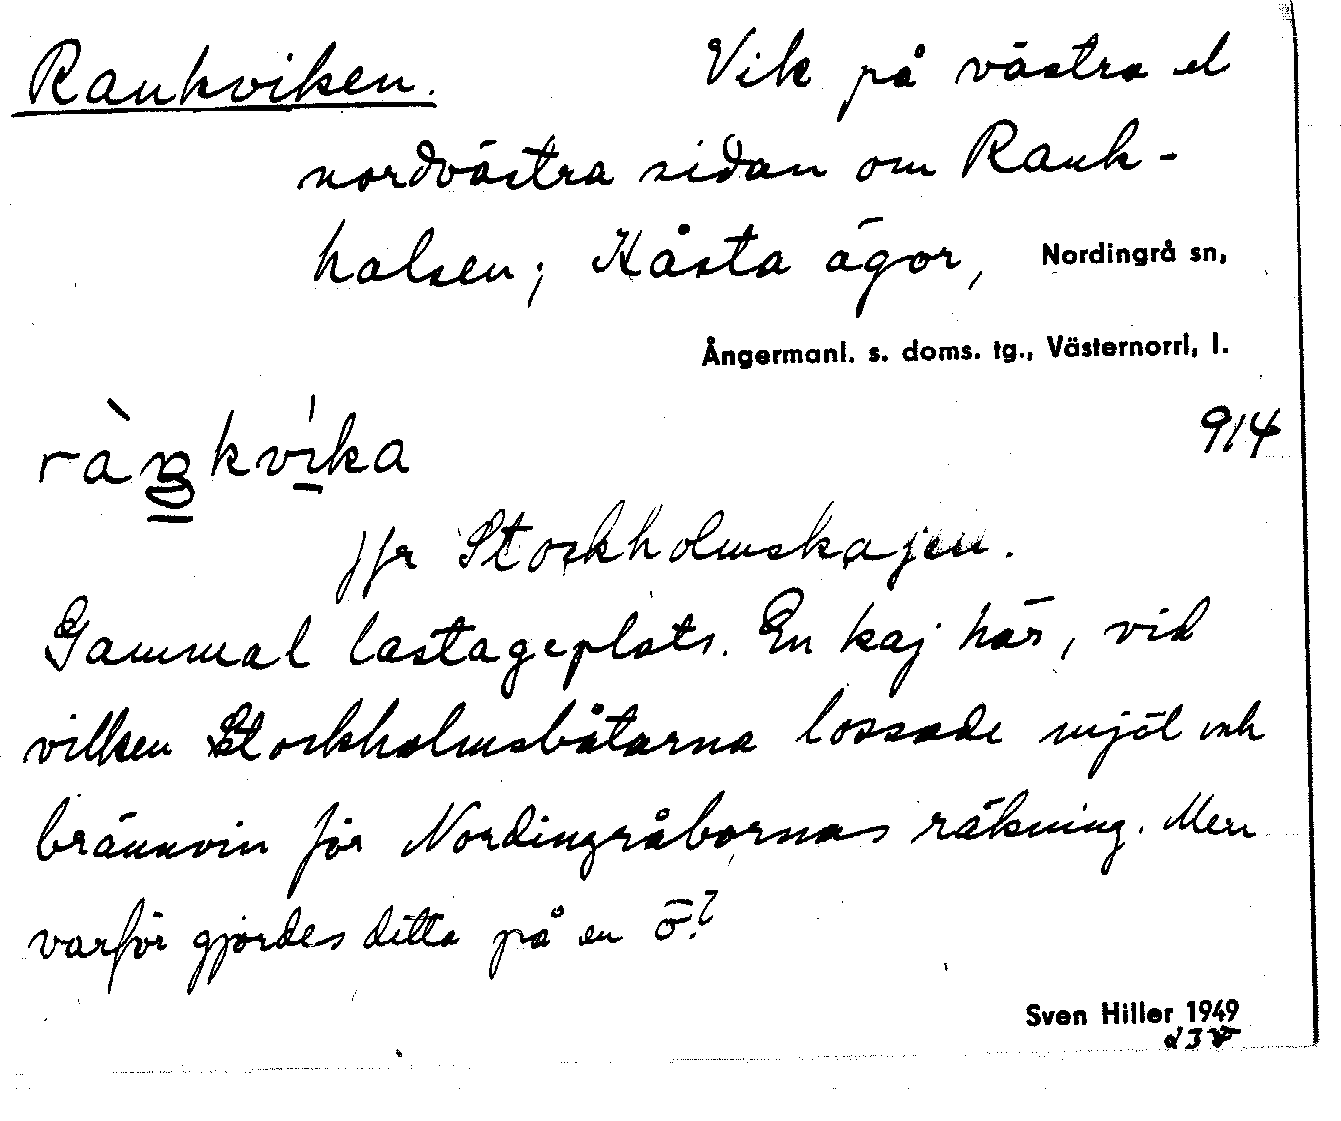 Rankviken. Vik på västra el
nordvästra sidan om Rank-
halsen; Kåsta ägor, Nordingrå sn,
Ångermanl. s. doms. tg., Västernorrl, l.
914
jfr Stockholmskajen.
Gammal lastageplats. En kaj här, vid
vilken Stockholmsbåtarna lossade mjöl och
brännvin för Nordingråbornas räkning. Men
varför gjordes detta på en ö?
Sven Hiller 1949